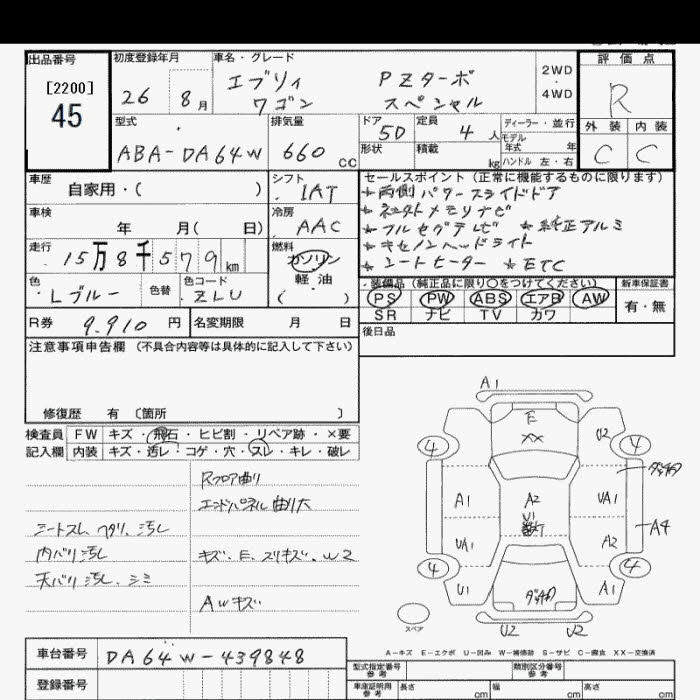 出品番号
[2200]
45
初度登録年月
26 8月
車名・グレード
エブリィ PZターボ
ワゴン スペシャル
2WD
4WD
評価点
R
外装 内装
C C
型式
ABA-DA64W
排気量
660 CC
ドア 5D
形状
定員 4人
積載 kg
ディーラー・並行
モデル年式 年
ハンドル 左・右
車歴
自家用・( )
シフト
IAT
車検
年 月( 日)
冷房
AAC
走行
15万8千579km
燃料
ガソリン
軽・油
( )
色
Lブルー
色替
色コード
ZLU
R券 9.910 円
名変期限 月 日
セールスポイント(正常に機能するものに限ります)
★両側パワースライドドア
★ネクストメモリナビ
★フルセグテレビ ★純正アルミ
★キセノンヘッドライト
★シートヒーター ★ETC
装備品(純正品に限り〇をつけてください)
新車保証書
PS PW ABS エアB AW
SR ナビ TV カワ
有・無
後日品
注意事項申告欄(不具合内容等は具体的に記入して下さい)
修復歴 有 〔箇所 〕
検査員 FW キズ・飛石・ヒビ割・リペア跡・×要
記入欄 内装 キズ・汚レ・コゲ・穴・スレ・キレ・破レ
Rフロア曲り
エンドパネル曲り大
シートスレ、ヘタリ、汚レ
内バリ汚レ
天バリ汚レ、シミ
キズ、E、スリキズ、W2
AWキズ
A1
E
XX
U2
4
4
A1
A2
U1
UA1
UA1
A2
A4
4
4
U1
A1
U2
U2
スペア
A-キズ E-エクボ U-凹み W-補修跡 S-サビ C-腐食 XX-交換済
車台番号 DA64W-439848
登録番号
型式指定番号
参考
類別区分番号
参考
車庫証明用
参考
長さ cm
幅 cm
高さ cm